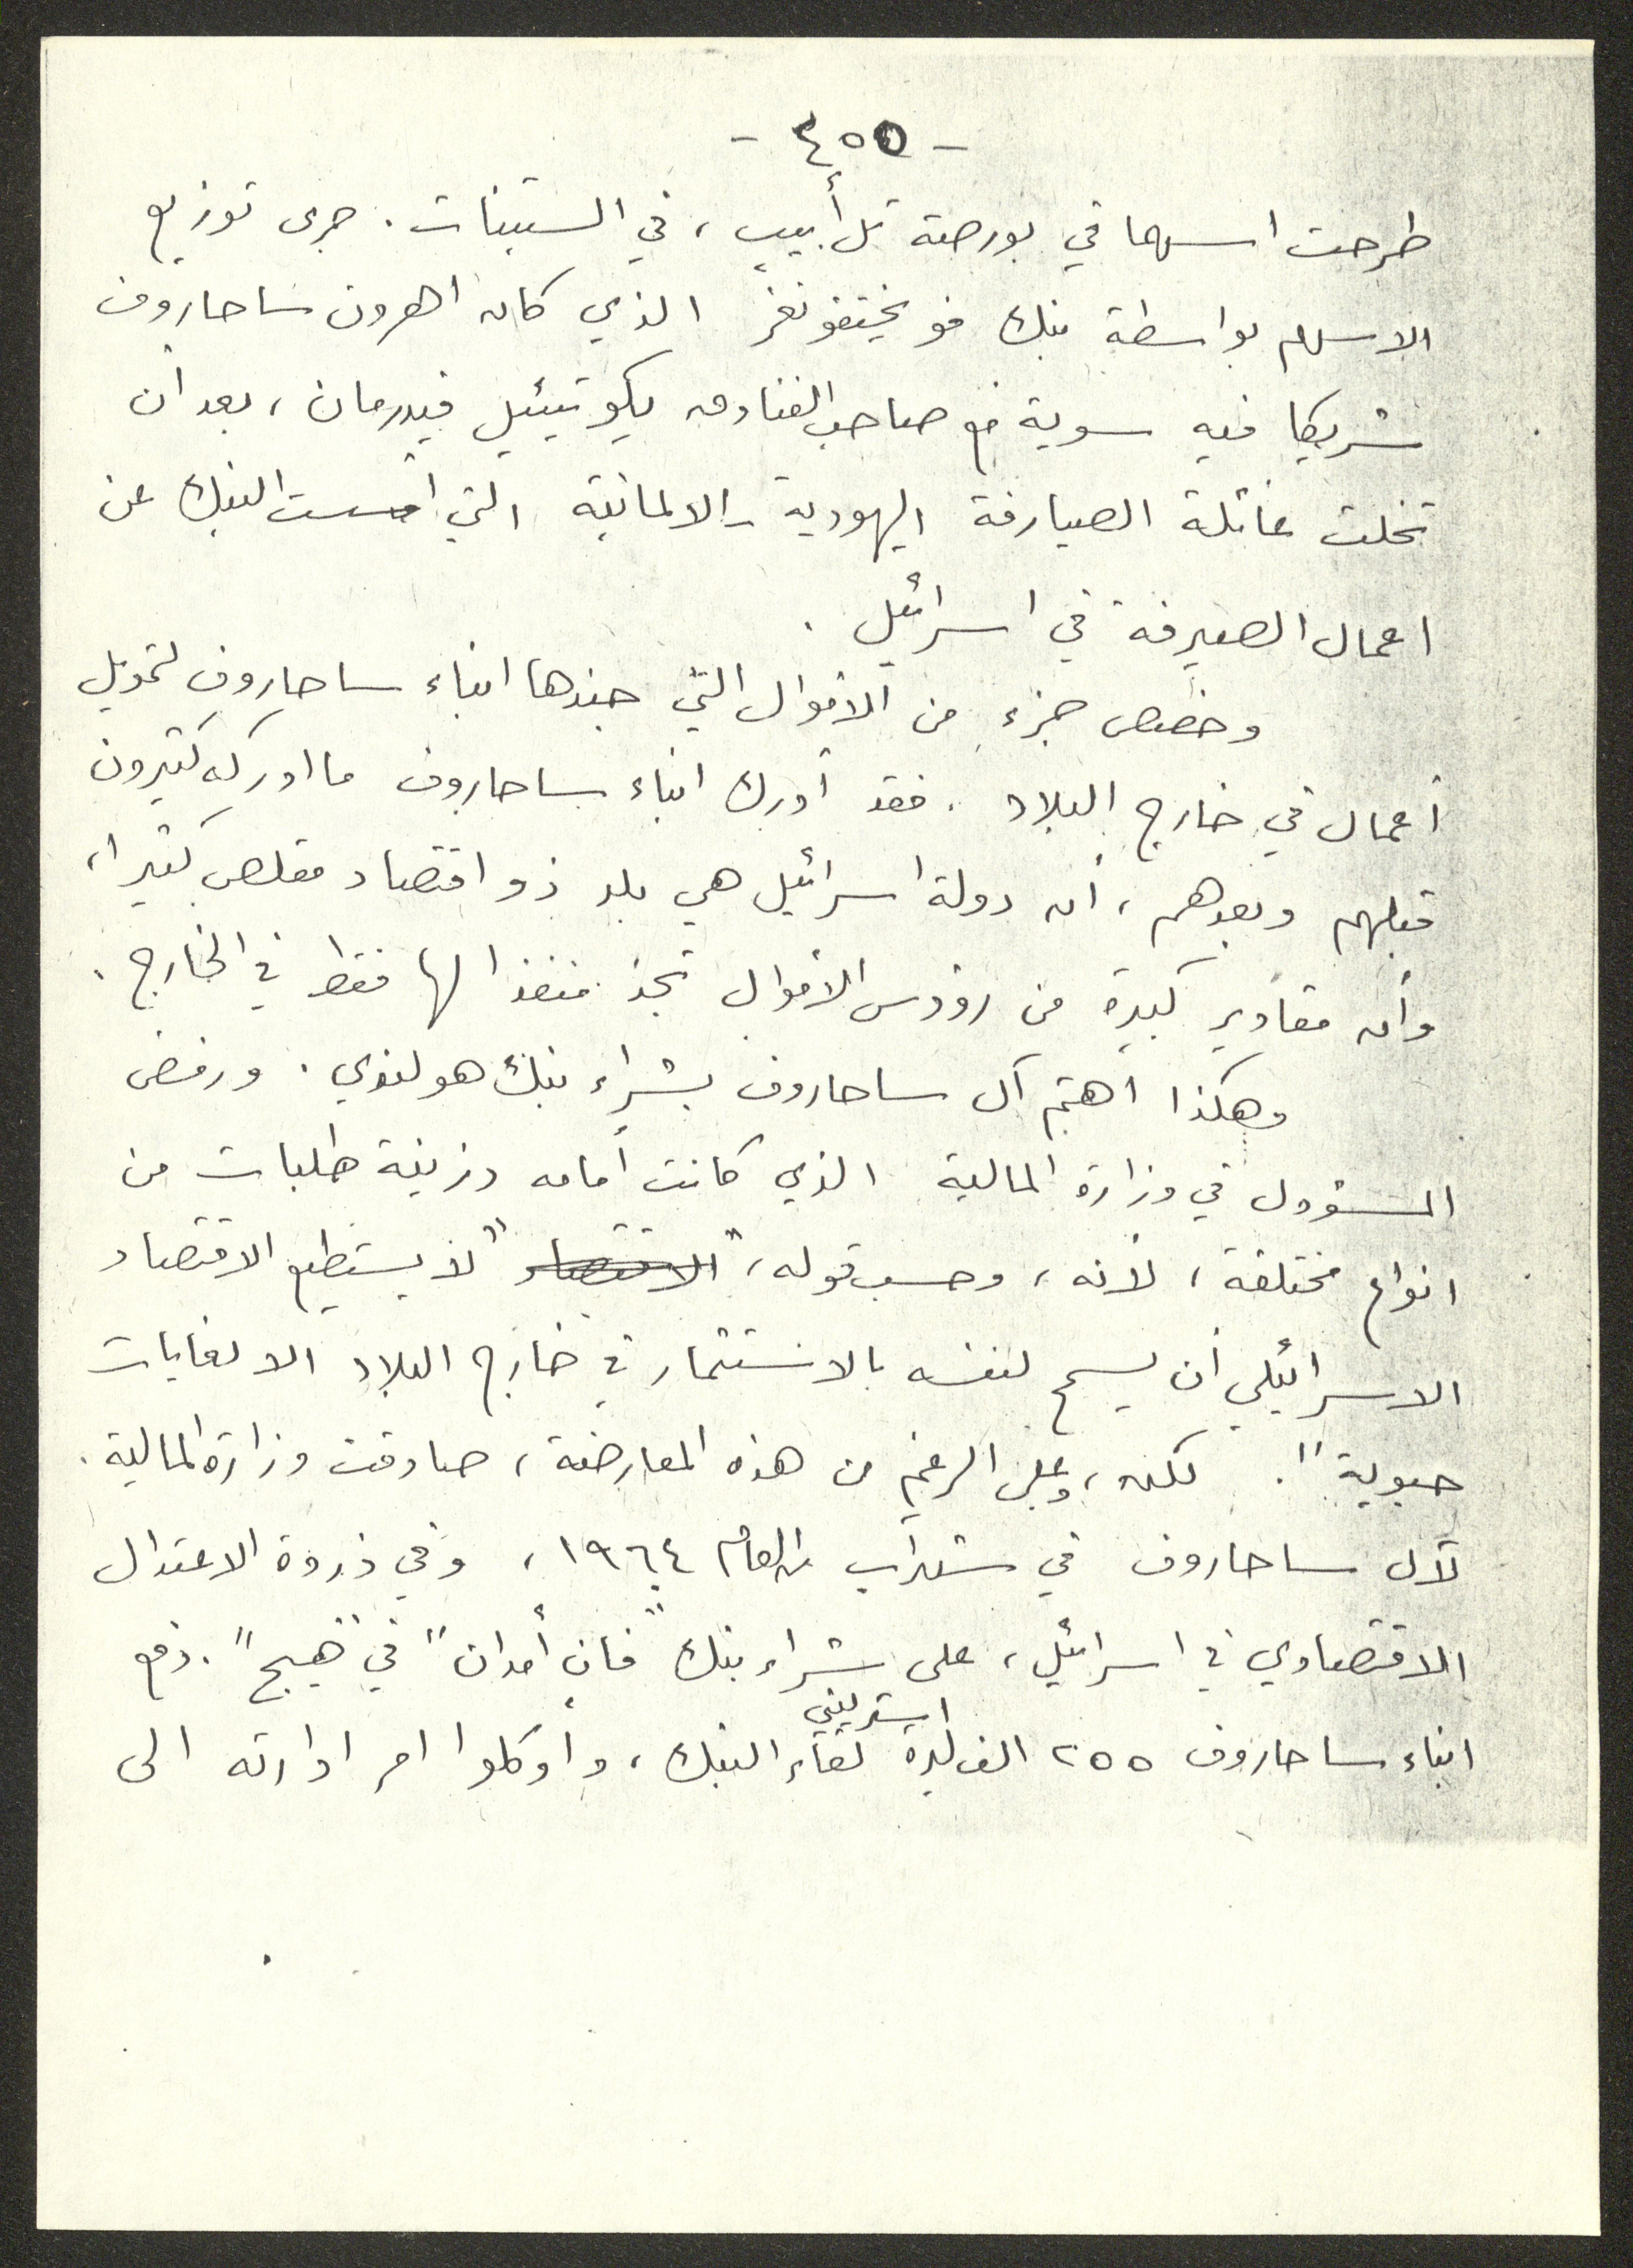 - ٤٥٥ -
طرحت اسهما في بورصة تل أبيب ، في الستينات . جرى توزيع
الاسهم بواسطة بنك فويختفونغر الذي كان اهرون ساحاروف
شريكا فيه سوية مع صاحب الفنادق يكوتيئيل فيدرمان ، بعد أن
تخلت عائلة الصيارفة اليهودية - الالمانية التي أسست البنك عن
اعمال الصيرفة في اسرائيل .
وخصص جزء من الأموال التي جندها ابناء ساحاروف لتمويل
أعمال في خارج البلاد . فقد أدرك ابناء ساحاروف ما ادركه كثيرون
قبلهم وبعدهم ، أن دولة اسرائيل هي بلد ذو اقتصاد مقلص كثيرا ،
وأن مقادير كبيرة من رؤوس الأموال تجد منفذا لها فقط في الخارج .
وهكذا اهتم آل ساحاروف بشراء بنك هولندي . ورفض
المسؤول في وزارة المالية الذي كانت أمامه دزينة طلبات من
انواع مختلفة ، لأنه ، وحسب قوله ، "الاقتصاد "لا يستطيع الاقتصاد
الاسرائيلي أن يسمح لنفسه بالاستثمار في خارج البلاد الا لغايات
حيوية" . لكنه ، وعلى الرغم من هذه المعارضة ، صادقت وزارة المالية .
لآل ساحاروف في شتراب العام ١٩٦٤ ، وفي ذروة الاعتدال
الاقتصادي في اسرائيل ، على شراء بنك "فان أمدان" في "هيج" . دفع
استرليني
ابناء ساحاروف ٢٥٥ الف ليرة لقاء البنك ، وأوكلوا امر ادارته الى